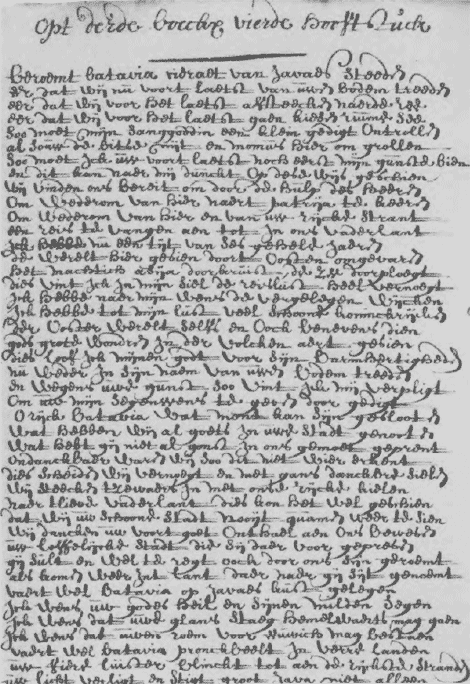 Opt derde boeckx vierde hooftstuck
Beroemt batavia cieraet van Javaes steeden
eer dat wij nu voort laetst van uwen bodem treeden
eer dat wij voor het laetst afsteecken naer de ree
eer dat wij voor het laetst gaen kiesen ruime see
Soo moet mijn sanggoddin een klein gedigt ontrollen
al souw de bitse nijt en momus hier om grollen
Soo moet Ick uw voort laetst noch eerst mijn gunste bien
en dit kan naer mij dunckt op dese wijs geschien
wij vinden ons bereit om door de hulp des heeren
Om wederom van hier naert patrija te keeren
Om wederom van hier en van uw rijcke strant
een reis te vangen aen tot in ons vaderlant
Ick hebbe nu een tijt van ses geheele Jaeren
de werelt hier gesien door Oosten omgevaren
het machtich asija doorkruist, de zee doorploegt
dies vint Ick in mijn siel de reislust heel vernoegt
Ick hebbe naer mijn wens de vergelegen wijcken
Ick hebbe tot mijn lust veel schoone koninckrijcken
der Ooster werelt selfs en Oock benevens dien
gods grote wondren in der volcken aert gesien
dies loof Ick mijnen godt voor sijn barmhertigheden
nu weder in sijn naem van uwen bodem treeden
en wegens uwe gunst soo vint Ick mij verpligt
Om uw mijn segenwens te geven door gedigt
O rijck batavia wat mont kan sijn gesloten
wat hebben wij al goets in uwe stadt genoten
wat hebt gij niet al gunst in ons gemoet geprent
Ondanckbaer waren wij soo dit niet wier erkent
dies scheiden wij vernoegt en met gans danckbre sielen
wij steecken zeewaers in met onse rijcke kielen
naer tlieve vaderlant dies kon het wel geschien
dat wij uw schoone stadt nooijt quamen weer te sien
wij dancken uw voort goet onthael aen ons bewesen
uw loffelijcke stadt die sij daer voor gepresen
gij sult en wel te regt oock door ons sijn geroemt
als komen weer int lant daer naer gij sijt genoemt
vaert wel batavia op Javaes kust gelegen
Ick wens uw godes heil en sijnen milden segen
Ick wens dat uwe glans staeg hemelwaerts mag gaen
Ick wens dat uwen roem voor euwich mag bestaen
vaert wel batavia pronckbeelt in verre landen
uw fiere luister blinckt tot aen de rijckste stranden
uw licht verligt en stigt groot Java niet alleen